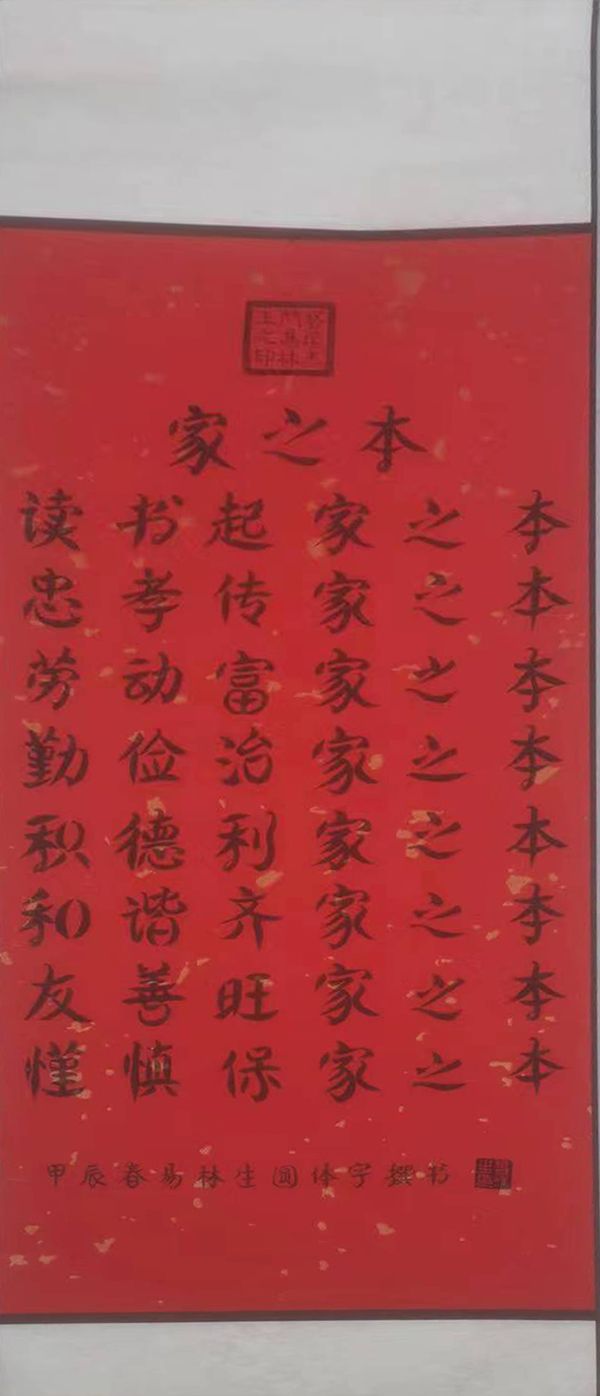 家之本
读书起家之本
忠孝传家之本
劳动富家之本
勤俭治家之本
积德利家之本
和谐齐家之本
友善旺家之本
慬慎保家之本
甲辰春易林生圆体字撰书